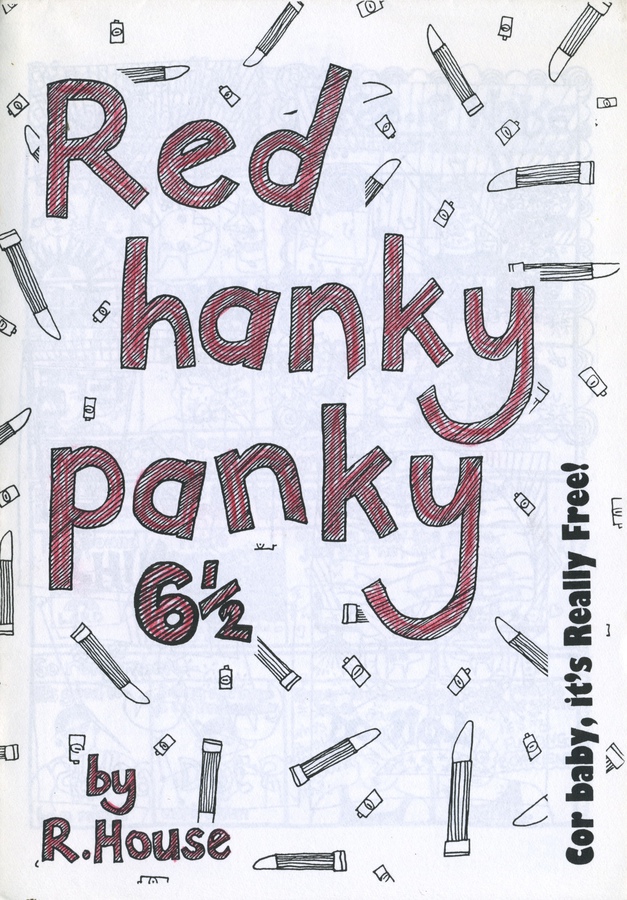 Red
hanky
panky
6½
by
R.House
Cor baby, it's Really Free!